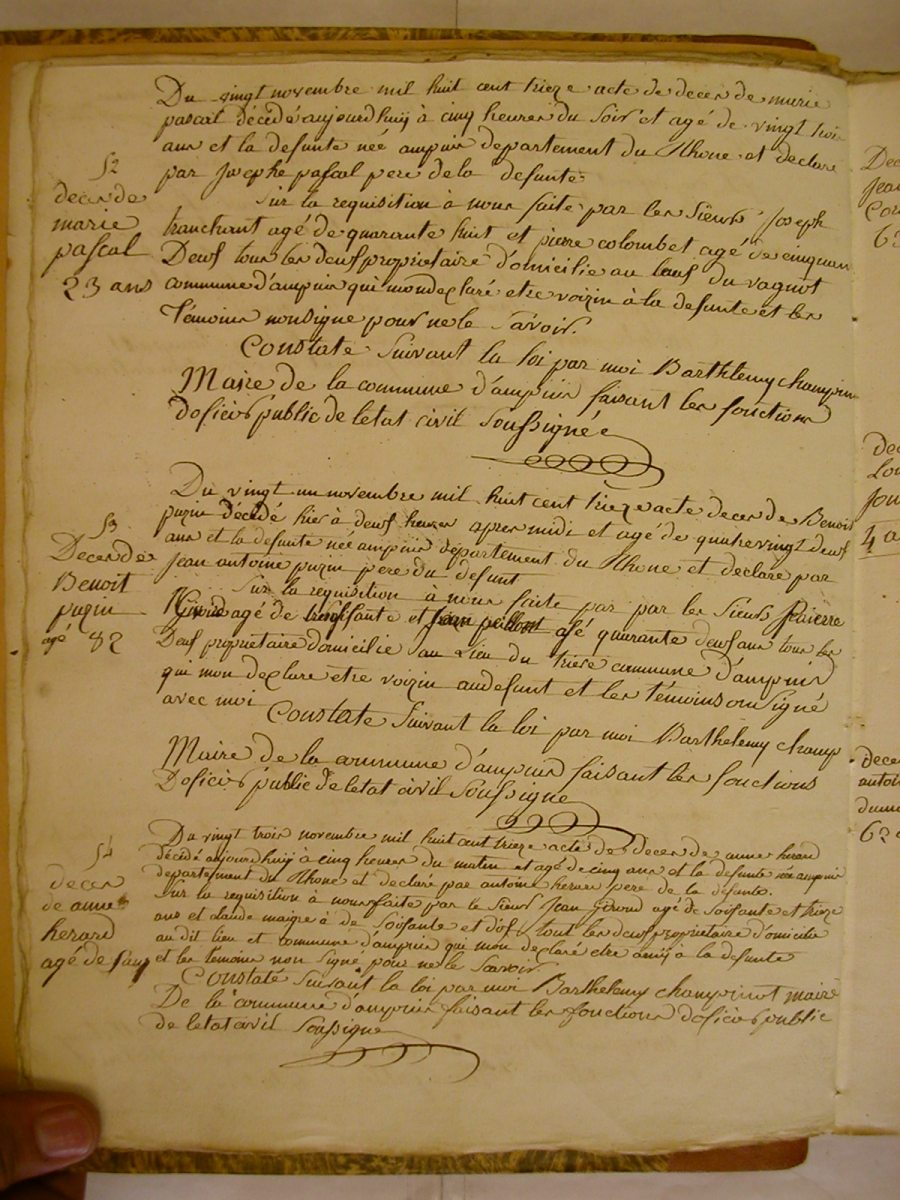 Du vingt novembre mil huit cent trieze acte de deces de marie
pascal décédé aujourdhuij à cinq heures du soir et agé de vingt trois
ans et la defunte née ampuis departement du Rhone et declaré
par Josephe pascal pere de la defunte
52
deces de
marie
pascal
23 ans
Sur la requisition à nous faite par les Sieurs Joseph
tranchant agé de quarante huit et pierre colombet agé de cinquan
Deuf tous les deuf proprietaire d'omicilié au lieuf du vagnot
commune d'ampuis qui mondeclaré etre voizin à la defunte et les
Témoins nonsigné pour ne le savoir
Constaté Suivant la loi par moi Barthlemy champin
Maire de la commune d'ampuis faisant les fonctions
doficiés public de letat civil Soussignée
Du vingt un novembre mil huit cent trieze acte deces de Benois
puzin décédé hier à deuf heures apres midi et agé de quatrevingt deuf
ans et la defunte née ampuis departement du Rhone et declaré par
Jean antoine puzin pere du defunt
53
Deces de
Benoit
puzin
agé 82
Sur la requisition à nous faite par par les Sieurs Paierre
agé de soissante et Jean agé quarante deuf ans tous les
Deuf proprietaire domicilié au Lieu du triere commune d'ampuis
qui mon declaré etre voizin audefunt et les témoins onsigné
avec moi
Constaté Suivant la loi par moi Barthelemy champ
Maire de la commune d'ampuis faisant les fonctions
Doficiés public de letat civil Soussigne
Du vingt trois novembre mil huit cent trieze acte de Deces de anne herard
décédé aujourdhuij à cinq heures du matin et agé de cinq ans et la defunte née ampuis
departement du Rhone et declaré par antoine herard pere de la defunte
54
deces
de anne
herard
agé de 5 ans
Sur la requisition à nous faite par le Sieurs Jean Giroud agé de soissante et trieze
ans et claude maigre à de soissante et dof tout les deuf proprietaire d'omicilié
au dit lieu et commune d'ampuis qui mon declaré etre amij à la defunte
et les temoins non signé pour ne le savoir
Constaté Suivant la loi par moi Barthelemy champinot maire
De la commune d'ampuis faisant les fonctions doficiés public
de letat civil Soussigne